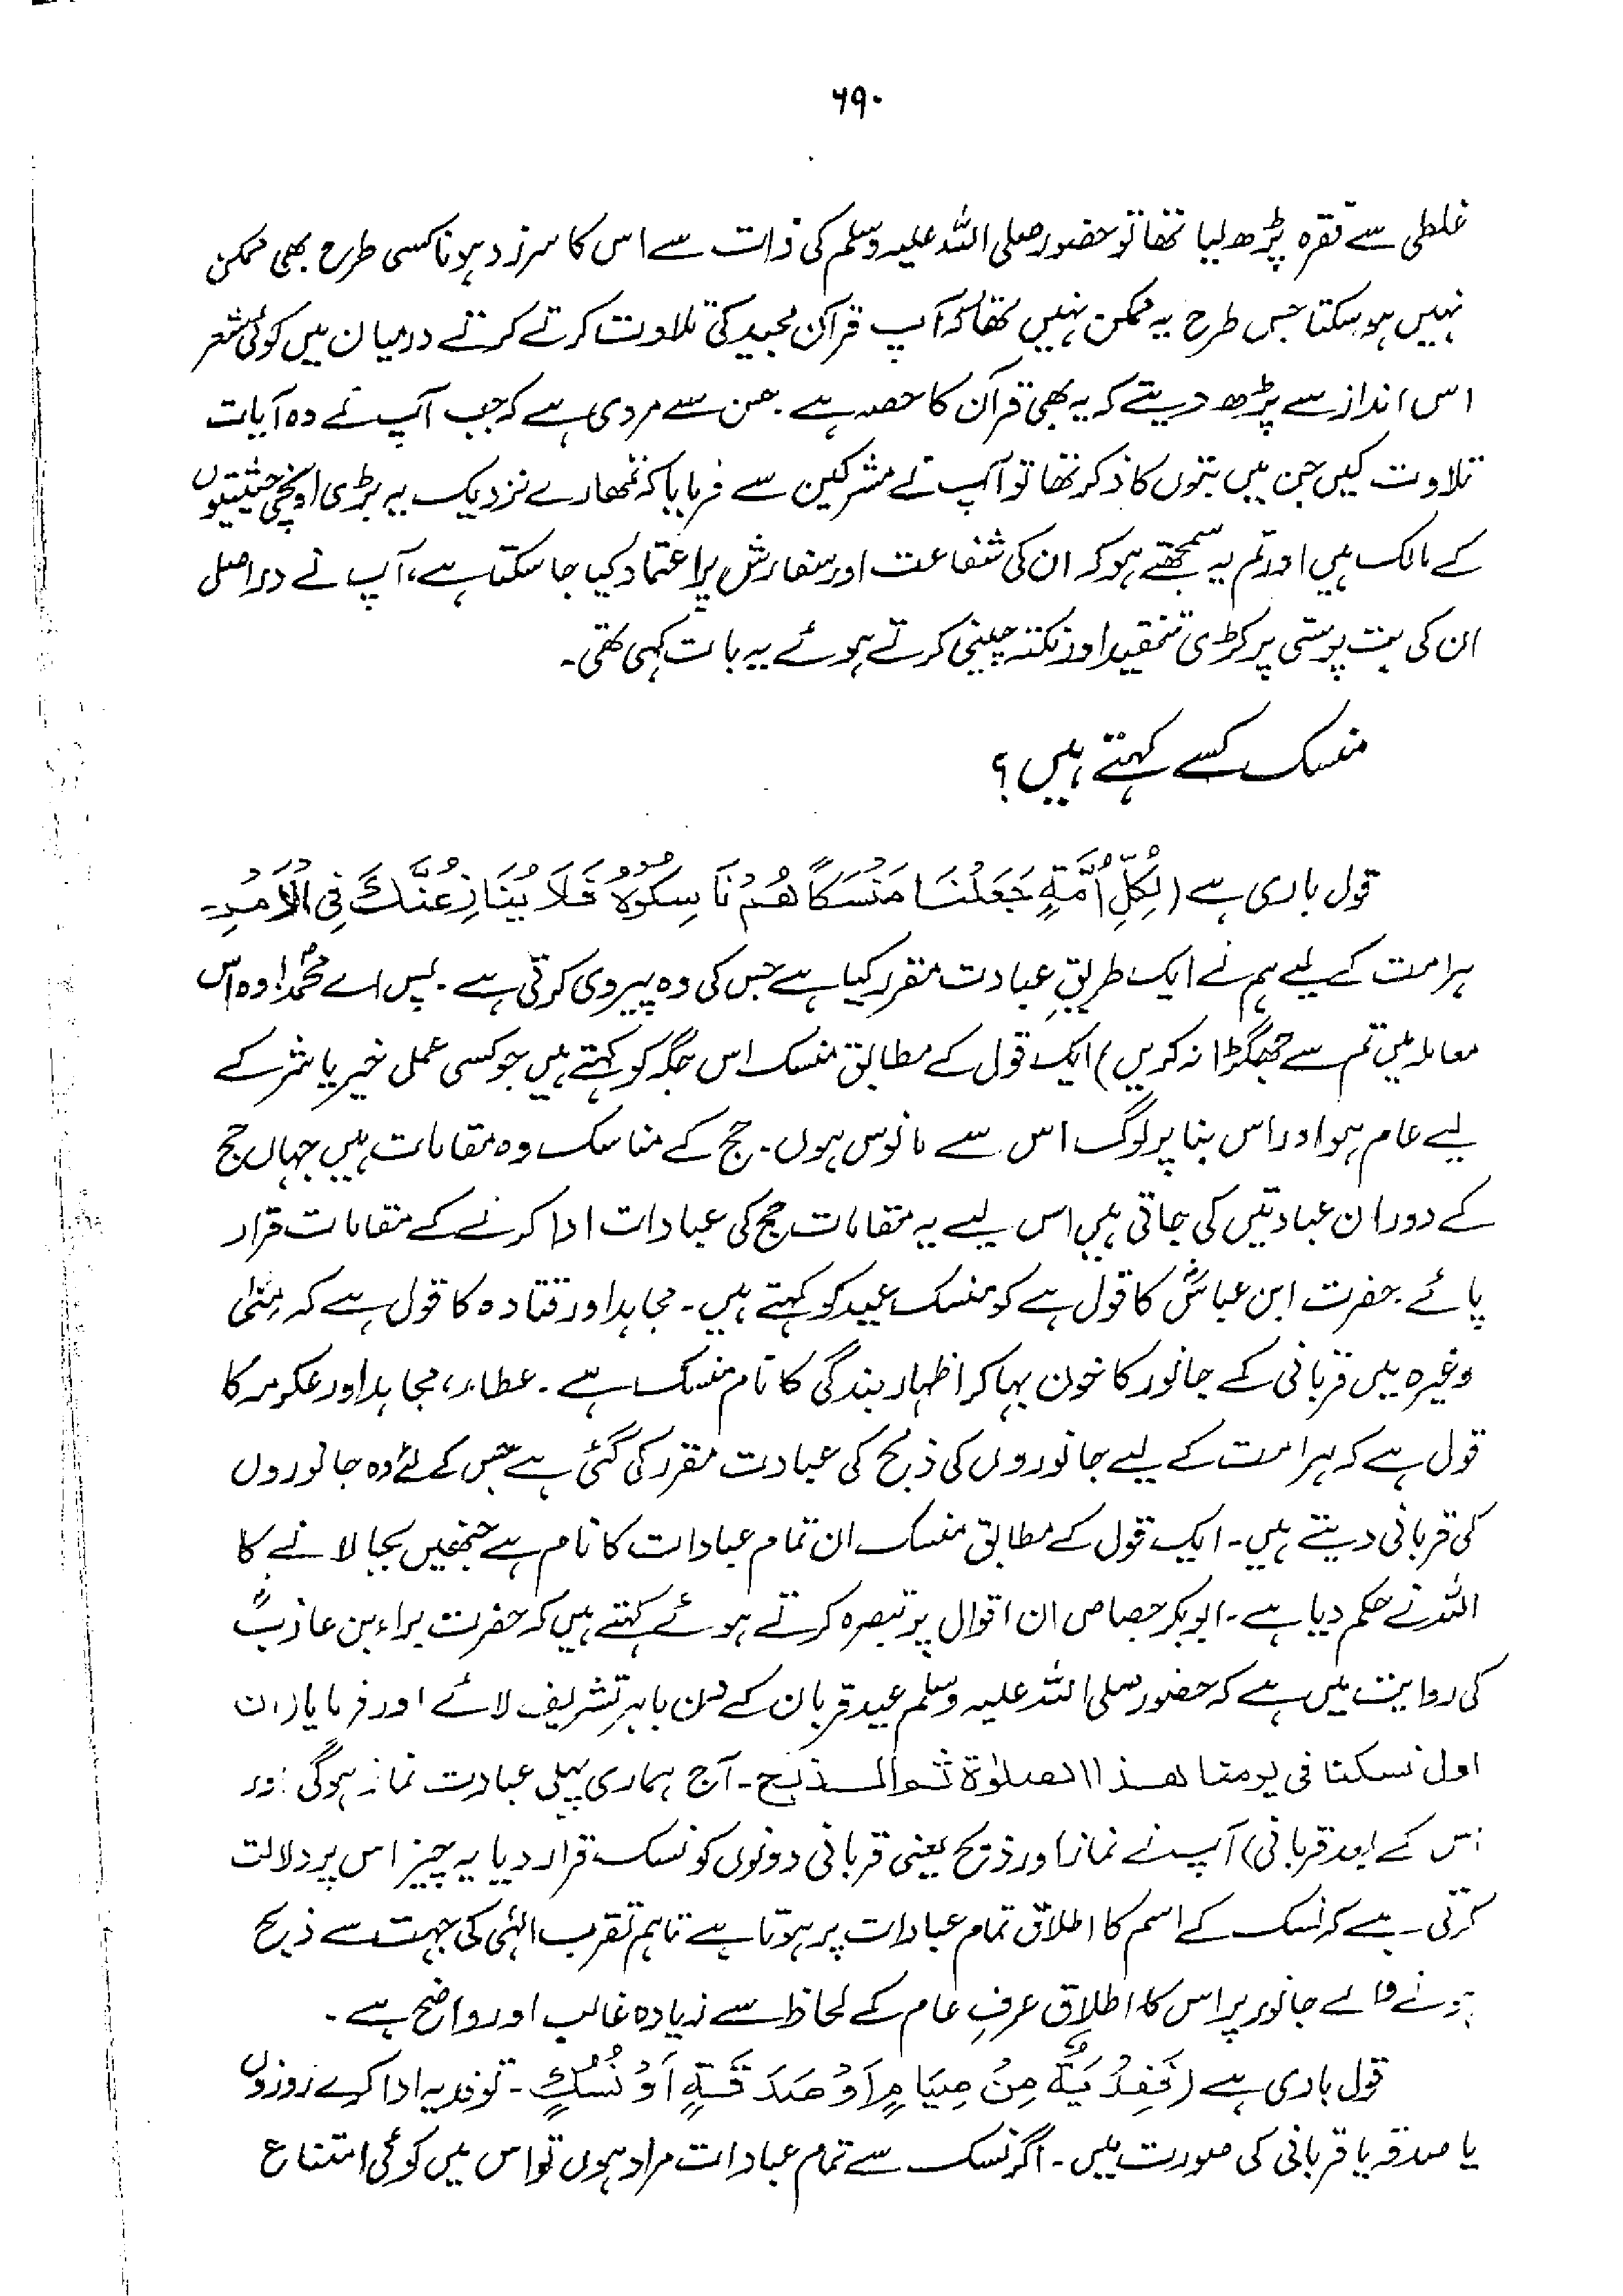 ۶۹۰
غلطی سے فقرہ پڑھ لیا تھا تو حضور صلی اللہ علیہ وسلم کی ذات سے اس کا سرزد ہونا کسی طرح بھی ممکن
نہیں ہو سکتا جس طرح یہ ممکن نہیں تھا کہ آپ قرآن مجید کی تلاوت کرتے کرتے درمیان میں کوئی شعر
اس انداز سے پڑھ دیتے کہ یہ بھی قرآن کا حصہ ہے۔ حسن سے مروی ہے کہ جب آپ نے وہ آیات
تلاوت کیں جن میں بتوں کا ذکر تھا تو آپ نے مشرکین سے فرمایا کہ تمھارے نزدیک یہ بڑی اونچی حیثیتوں
کے مالک ہیں اور تم یہ سمجھتے ہو کہ ان کی شفاعت اور سفارش پر اعتماد کیا جا سکتا ہے، آپ نے دراصل
ان کی بت پرستی پر کڑی تنقید اور نکتہ چینی کرتے ہوئے یہ بات کہی تھی۔
منسک کسے کہتے ہیں؟
قول باری ہے (لِكُلِّ اُمَّةٍ جَعَلْنَا مَنْسَكًا هُمْ نَاسِكُوْهُ فَلَا يُنَازِعُنَّكَ فِي الْاَمْرِ۔
ہر امت کے لیے ہم نے ایک طریقِ عبادت مقرر کیا ہے جس کی وہ پیروی کرتی ہے۔ پس اے محمدؐ! وہ اس
معاملہ میں تم سے جھگڑا نہ کریں) ایک قول کے مطابق منسک اس جگہ کو کہتے ہیں جو کسی عمل خیر یا شر کے
لیے عام ہو اور اس بنا پر لوگ اس سے مانوس ہوں۔ حج کے مناسک وہ مقامات ہیں جہاں حج
کے دوران عبادتیں کی جاتی ہیں اس لیے یہ مقامات حج کی عبادات ادا کرنے کے مقامات قرار
پائے۔ حضرت ابن عباسؓ کا قول ہے کو منسک عید کو کہتے ہیں۔ مجاہد اور قتادہ کا قول ہے کہ مِنٰی
وغیرہ میں قربانی کے جانور کا خون بہا کر اظہار بندگی کا نام منسک ہے۔ عطاء، مجاہد اور عکرمہ کا
قول ہے کہ ہر امت کے لیے جانوروں کی ذبح کی عبادت مقرر کی گئی ہے جس کے لئے وہ جانوروں
کی قربانی دیتے ہیں۔ ایک قول کے مطابق منسک ان تمام عبادات کا نام ہے جنھیں بجا لانے کا
اللہ نے حکم دیا ہے۔ ابو بکر جصاص ان اقوال پر تبصرہ کرتے ہوئے کہتے ہیں کہ حضرت براء بن عازبؓ
کی روایت میں ہے کہ حضور صلی اللہ علیہ وسلم عید قربان کے دن باہر تشریف لائے اور فرمایا (ان
اول نسكنا فى يومنا هذا الصلوٰة ثم الذبح۔ آج ہماری پہلی عبادت نماز ہوگی اور
اس کے بعد قربانی) آپ نے نماز اور ذبح یعنی قربانی دونوں کو نسک قرار دیا یہ چیز اس پر دلالت
کرتی ہے کہ نسک کے اسم کا اطلاق تمام عبادات پر ہوتا ہے تاہم تقرب الٰہی کی جہت سے ذبح
ہونے والے جانور پر اس کا اطلاق عرفِ عام کے لحاظ سے زیادہ غالب اور واضح ہے۔
قول باری ہے (فَفِدْيَةٌ مِنْ صِيَامٍ اَوْ صَدَقَةٍ اَوْ نُسُكٍ۔ تو فدیہ ادا کرے روزوں
یا صدقہ یا قربانی کی صورت میں۔ اگر نسک سے تمام عبادات مراد ہوں تو اس میں کوئی امتناع